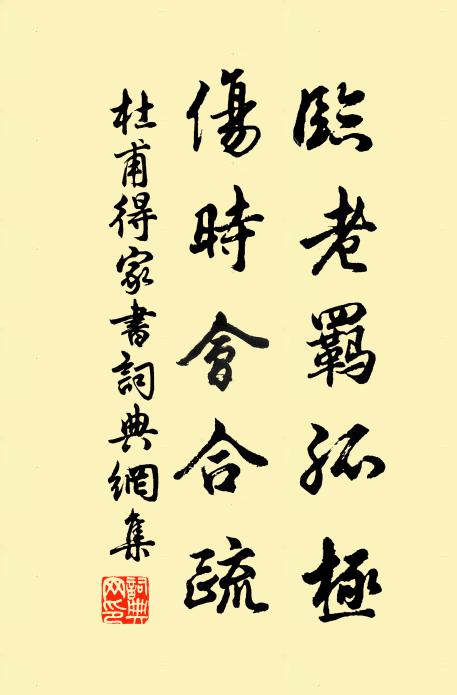 臨老羈孤極
傷時會合疏
杜甫得家書詞典網集
詞典網印